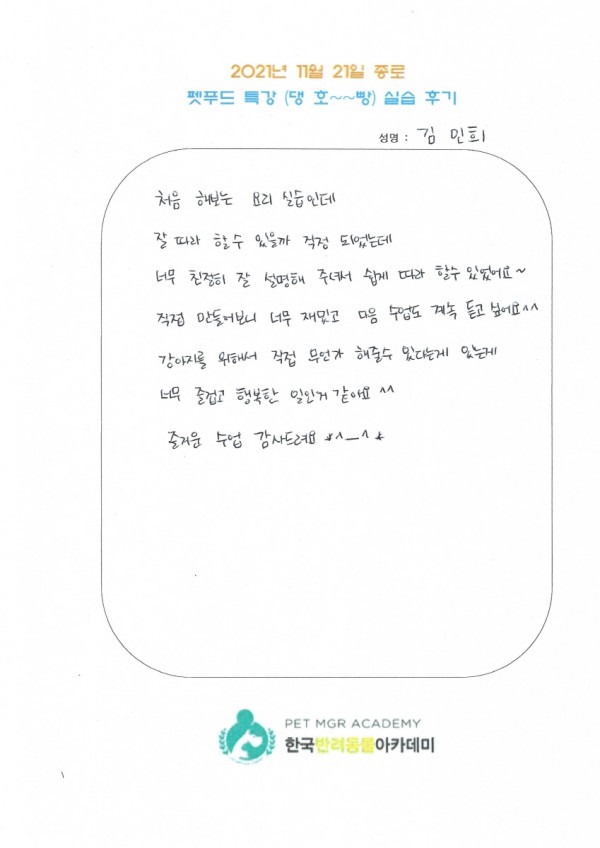 2021년 11월 21일 종로
펫푸드 특강 (댕 호~~빵) 실습 후기
성명 : 김 민희
처음 해보는 요리 실습인데
잘 따라 할수 있을까 걱정 되었는데
너무 친절히 잘 설명해 주녀서 쉽게 따라 할수 있었어요~
직접 만들어보니 너무 재밌고 다음 수업도 계속 듣고 싶어요^^
강아지를 위해서 직접 무언가 해줄수 있다는게 있는게
너무 즐겁고 행복한 일인거 같아요 ^^
즐거운 수업 감사드려요 *^_^*
PET MGR ACADEMY
한국반려동물아카데미